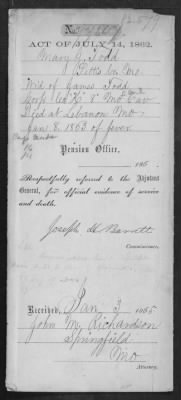 ACT OF JULY 14, 1862.
Mary A. Todd
Pettis Co. Mo.
Wid of James Todd
Corp Co "K" 8" Mo Cav
Died at Lebanon Mo
Jan 8, 1863 of fever
Pension Office,
186 .
Respectfully referred to the Adjutant
General, for official evidence of service
and death.
Joseph H Barrett
Commissioner.
Received, Jan 3 1865
John M. Richardson
Springfield
Mo
Attorney.